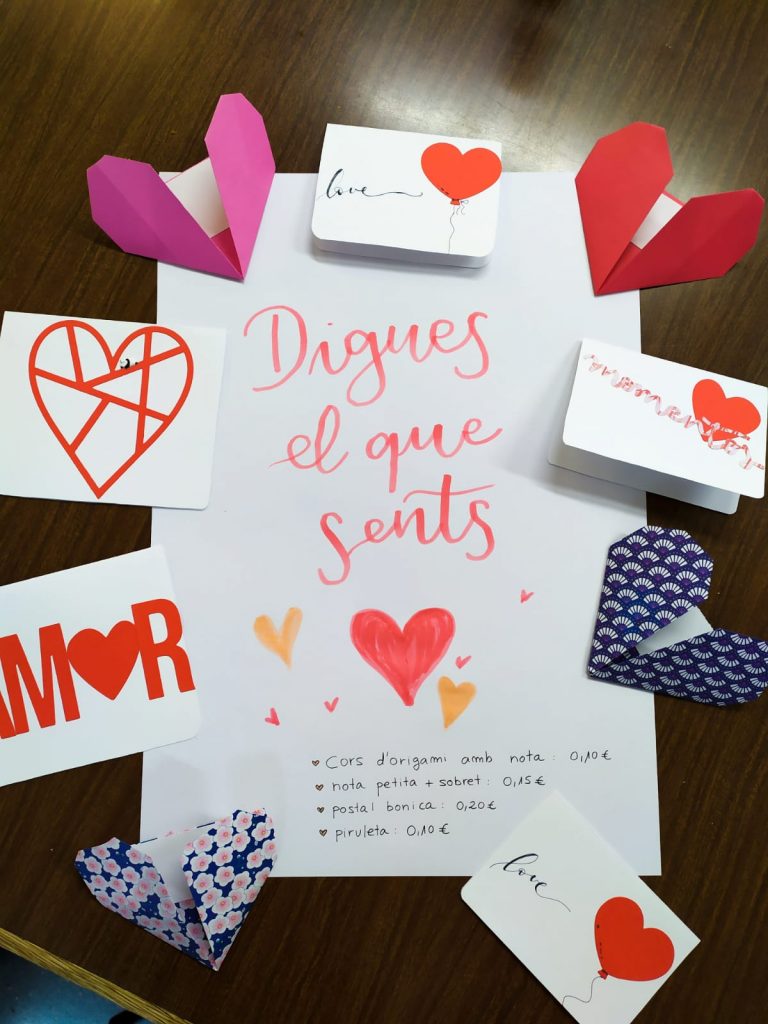 love
Digues
el que
sents
AM♥R
♥ Cors d'origami amb nota: 0,10€
♥ nota petita + sobret: 0,15€
♥ postal bonica: 0,20€
♥ piruleta: 0,10€
love